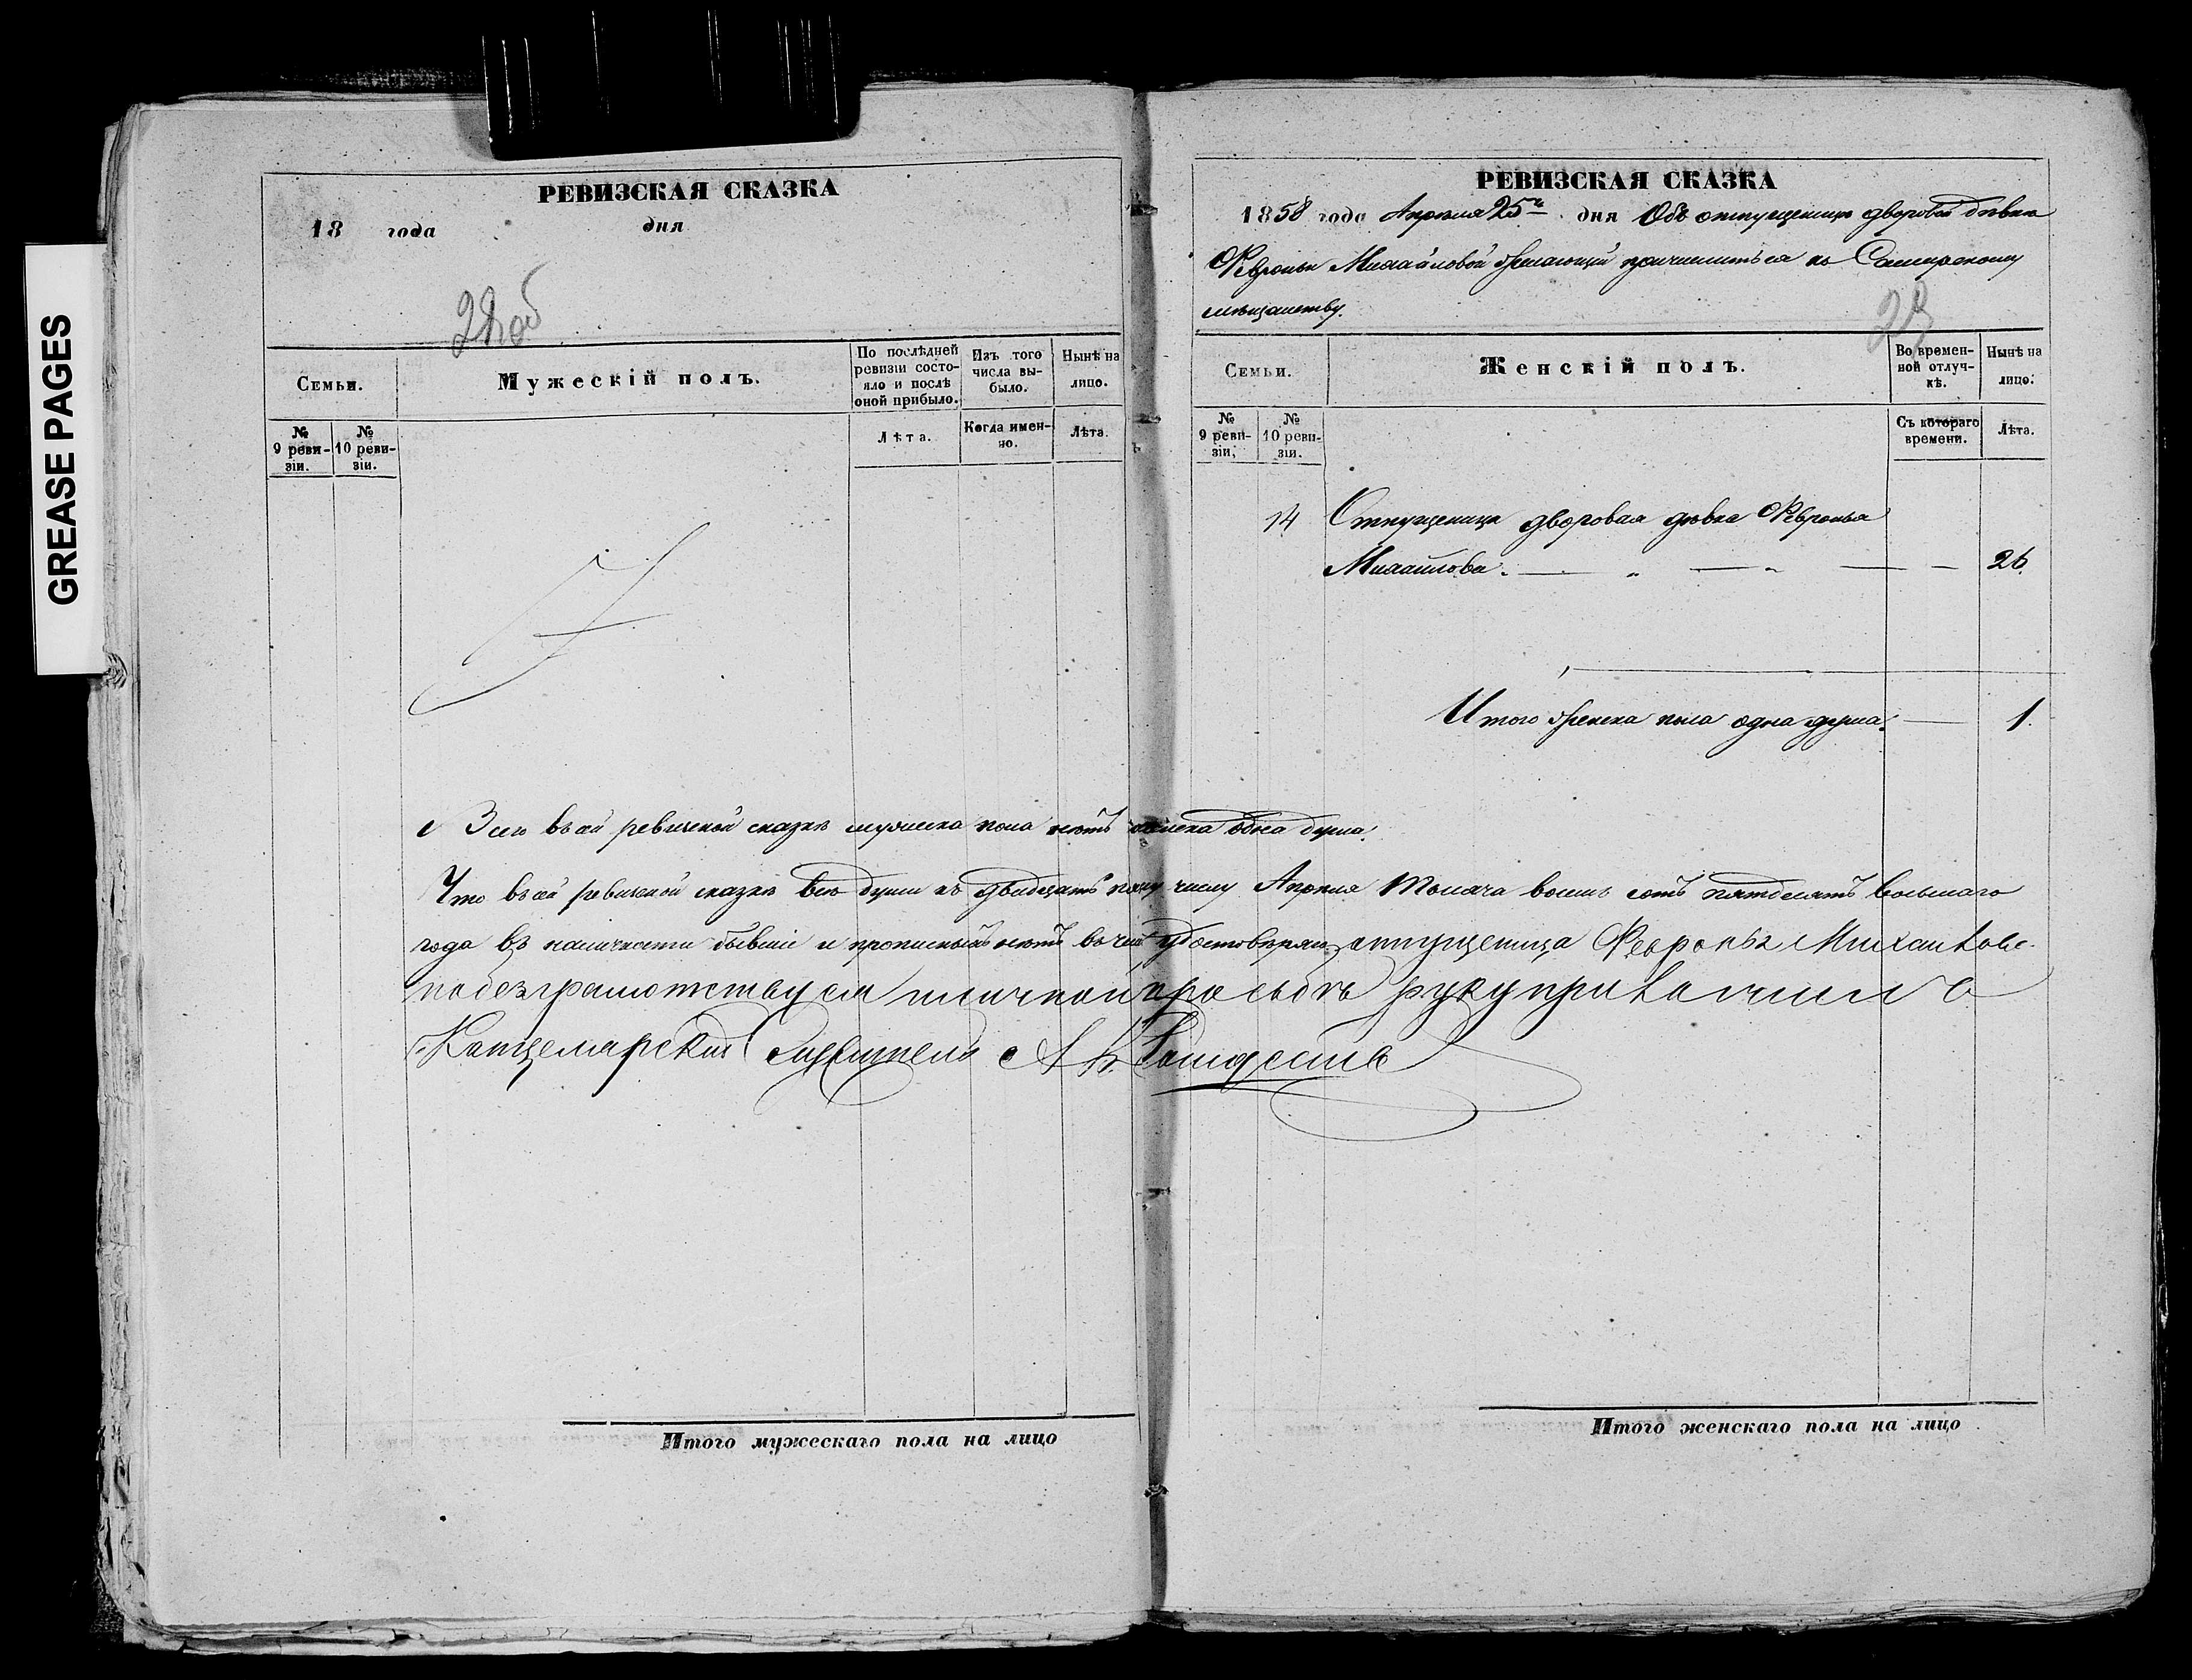 GREASE PAGES
РЕВИЗСКАЯ СКАЗКА
18 года дня
28об
Семьи.
Мужескій полъ.
По послѣдней ревизіи состояло и послѣ оной прибыло.
Изъ того числа выбыло.
Нынѣ на лицо.
№ 9 ревизіи.
№ 10 ревизіи.
Лѣта.
Когда именно.
Лѣта.
РЕВИЗСКАЯ СКАЗКА
1858 года Апрѣля 25го дня Объ отпущеницѣ дворовой дѣвкѣ
Февроньи Михайловой желающей причислиться къ Самарскому
мѣщанству.
29
Семьи.
Женскій полъ.
Во временной отлучкѣ.
Нынѣ на лицо.
№ 9 ревизіи.
№ 10 ревизіи.
Съ котораго времени.
Лѣта.
14 Отпущеница дворовая дѣвка Февронья
Михайлова. — „ — „ — — 26
Итого женска пола одна душа. — 1.
Всего въ сей ревизской сказкѣ мужеска пола нѣтъ женска одна душа.
Что въ сей ревизской сказкѣ всѣ души къ двадцать пятому числу Апрѣля тысяча восемь сотъ пятьдесятъ восьмаго
года въ наличности бывшіе и прописныхъ нѣтъ въ чемъ удостовѣряю отпущеница Февронья Михайлова
по безграмотству ея и личной просьбѣ руку приложилъ
Канцелярскій Служитель А.
Итого мужескаго пола на лицо
Итого женскаго пола на лицо